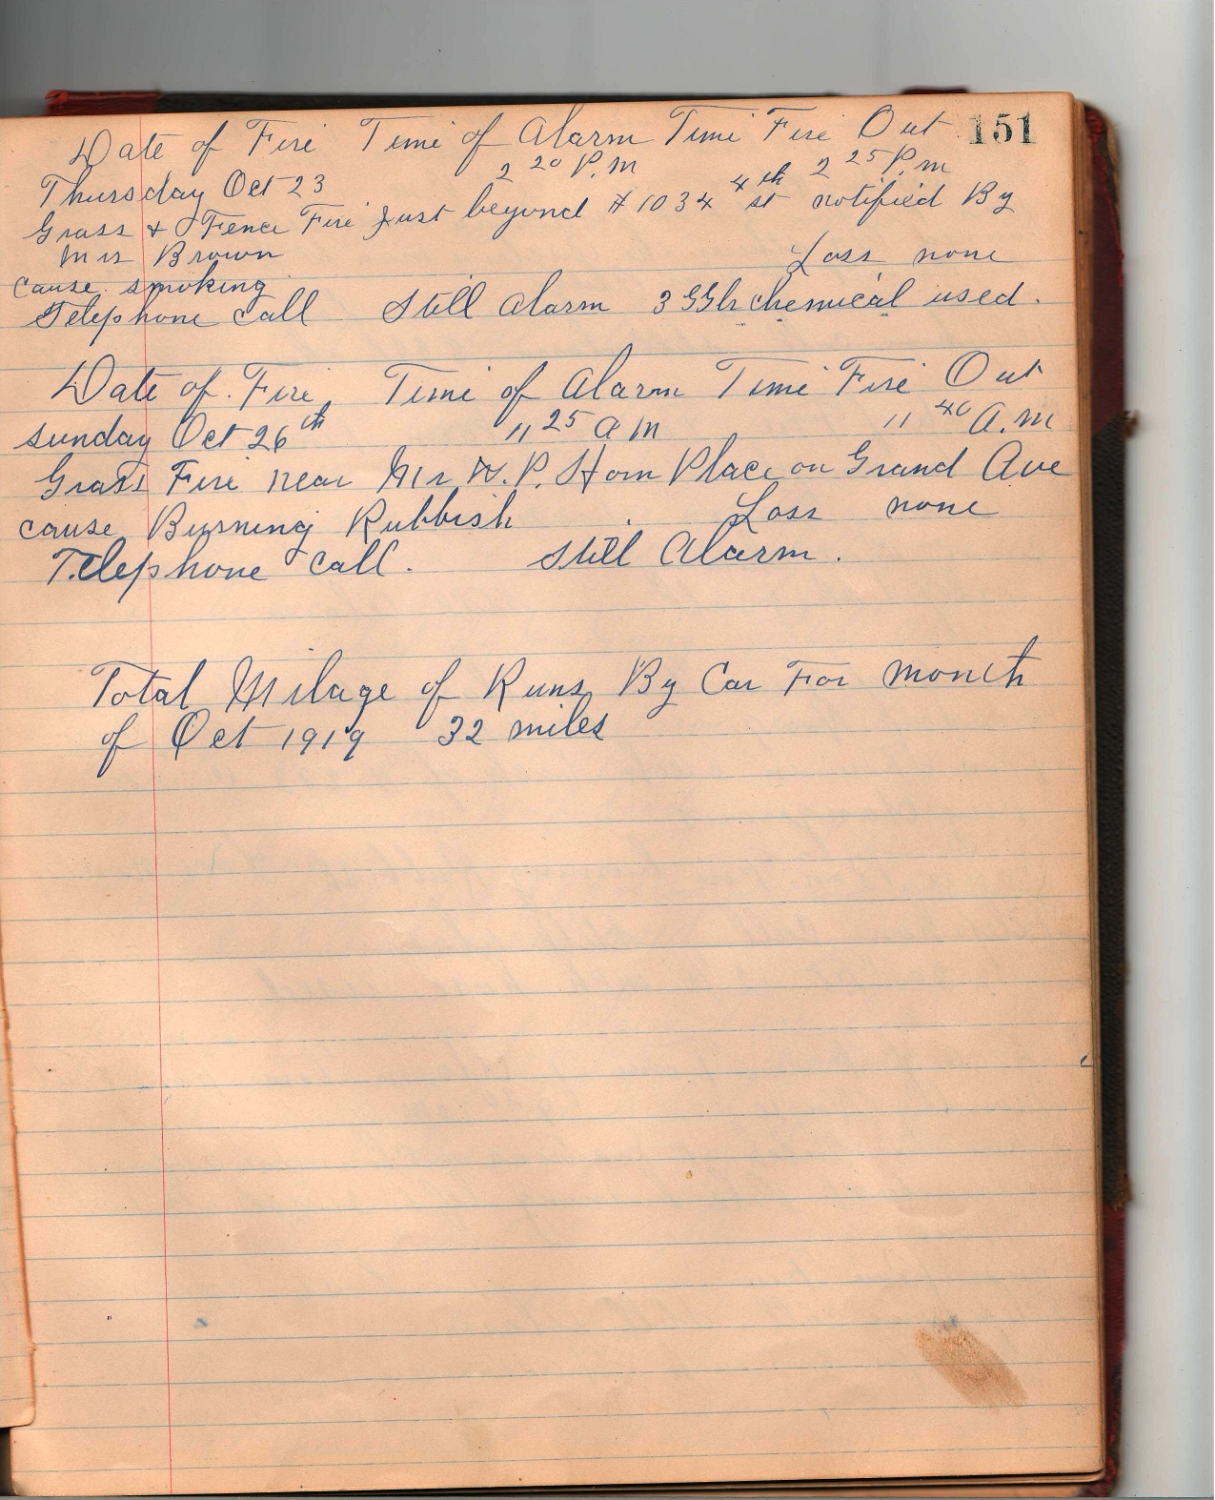 Date of Fire Time of Alarm Time Fire Out 151
Thursday Oct 23 2 20 P.M 2 25 P.M
Grass & Fence Fire just beyond # 1034 4th st notified By
Mrs Brown Loss none
cause. smoking
Telephone Call Still Alarm 3 chemical used.
Date of Fire Time of Alarm Time Fire Out
Sunday Oct 26th 11 25 A M 11 40 A.M
Grass Fire near Mr W. P. Horn Place on Grand Ave
cause Burning Rubbish Loss none
Telephone Call. Still Alarm.
Total Milage of Runs By Car For Month
of Oct 1919 32 miles